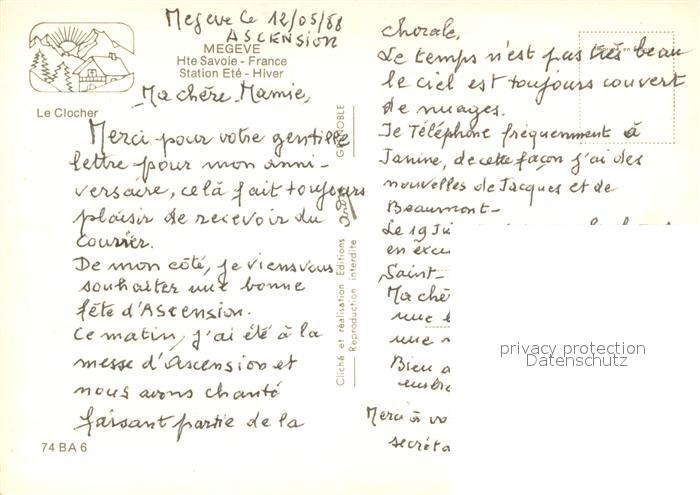 Megeve Ce 12/05/88
ASCENSION
MEGEVE
Hte Savoie - France
Station Eté - Hiver
Le Clocher
Ma chère Mamie,
Merci pour votre gentille
lettre pour mon anni-
versaire, celà fait toujours
plaisir de recevoir du
courrier.
De mon côté, je viens vous
souhaiter une bonne
fête d'Ascension.
Ce matin, j'ai été à la
messe d'Ascension et
nous avons chanté
faisant partie de la
74 BA 6
GRENOBLE
Cliché et réalisation Editions
Reproduction interdite
chorale,
Le temps n'est pas très beau
le ciel est toujours couvert
de nuages.
Je Téléphone fréquemment à
Janine, de cette façon j'ai des
nouvelles de Jacques et de
Beaumont-
Le 19
en
Saint-
Ma
une
une
Bien
Merci à
privacy protection
Datenschutz